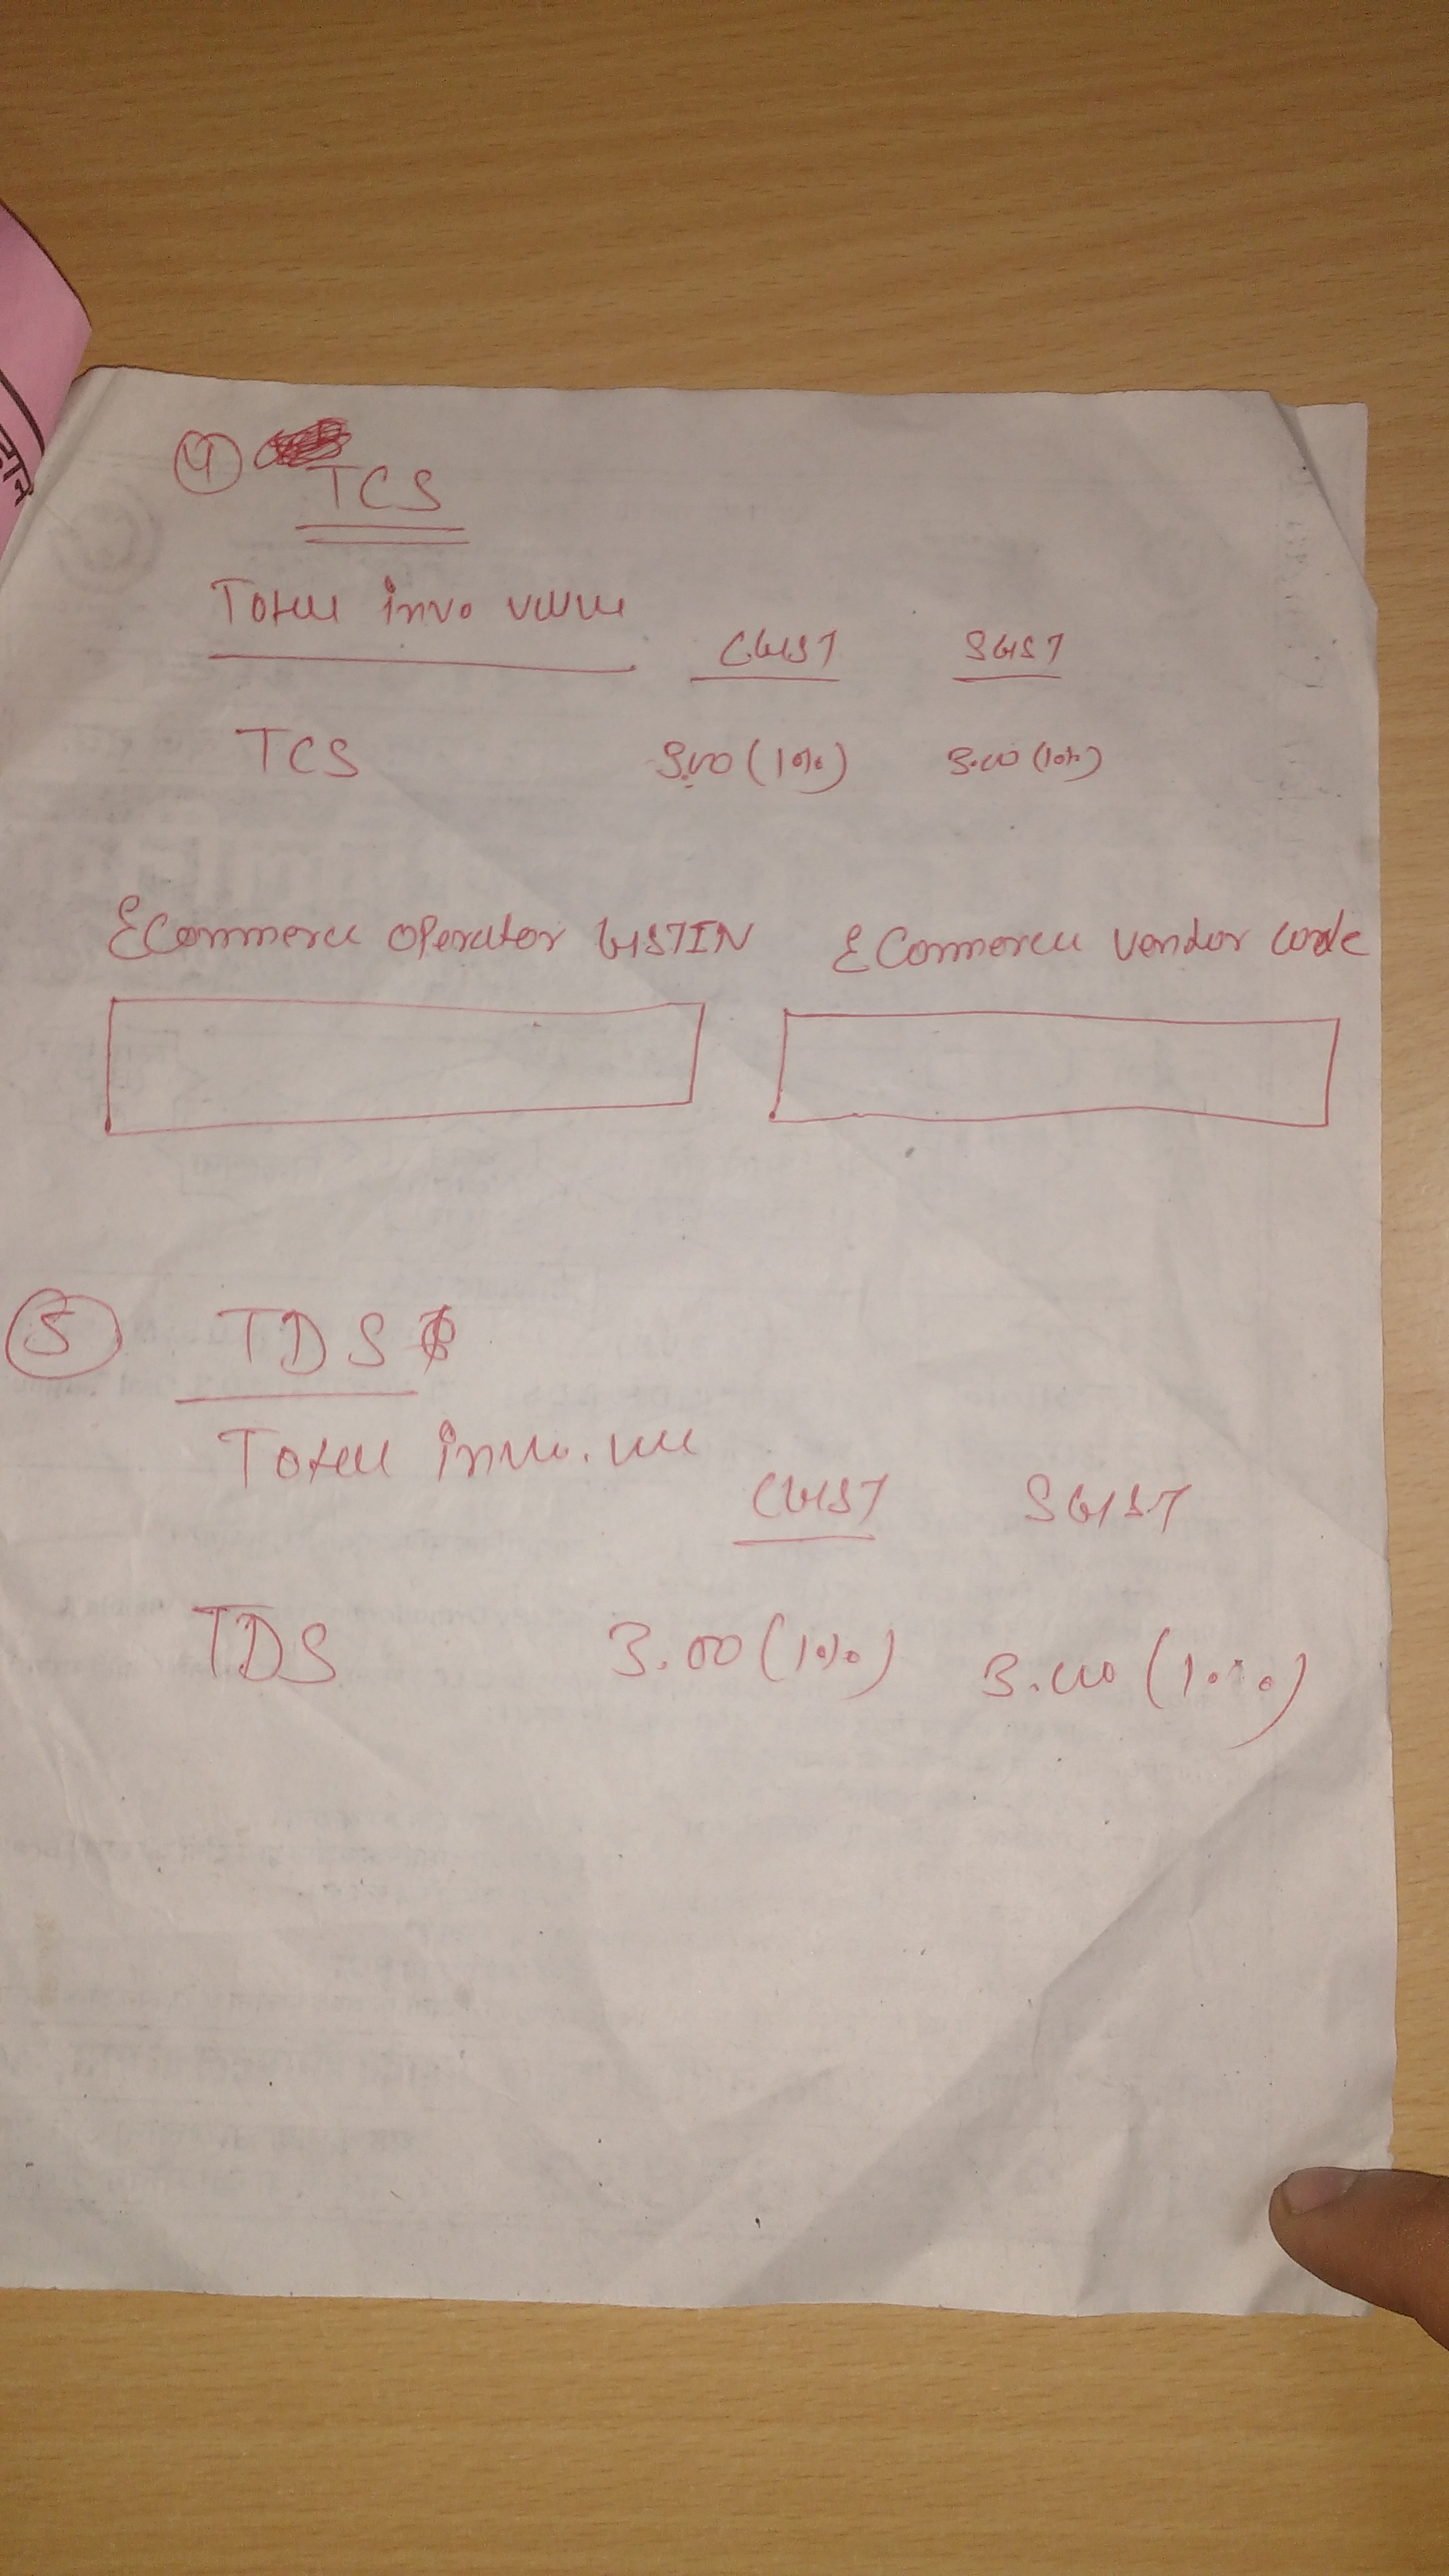 4 TCS
Total invo value
CGST SGST
TCS 3.00 (1%) 3.00 (1%)
ECommerce operator GSTIN ECommerce vendor code
5 TDS
Total invo.
CGST SGST
TDS 3.00 (1%) 3.00 (1%)